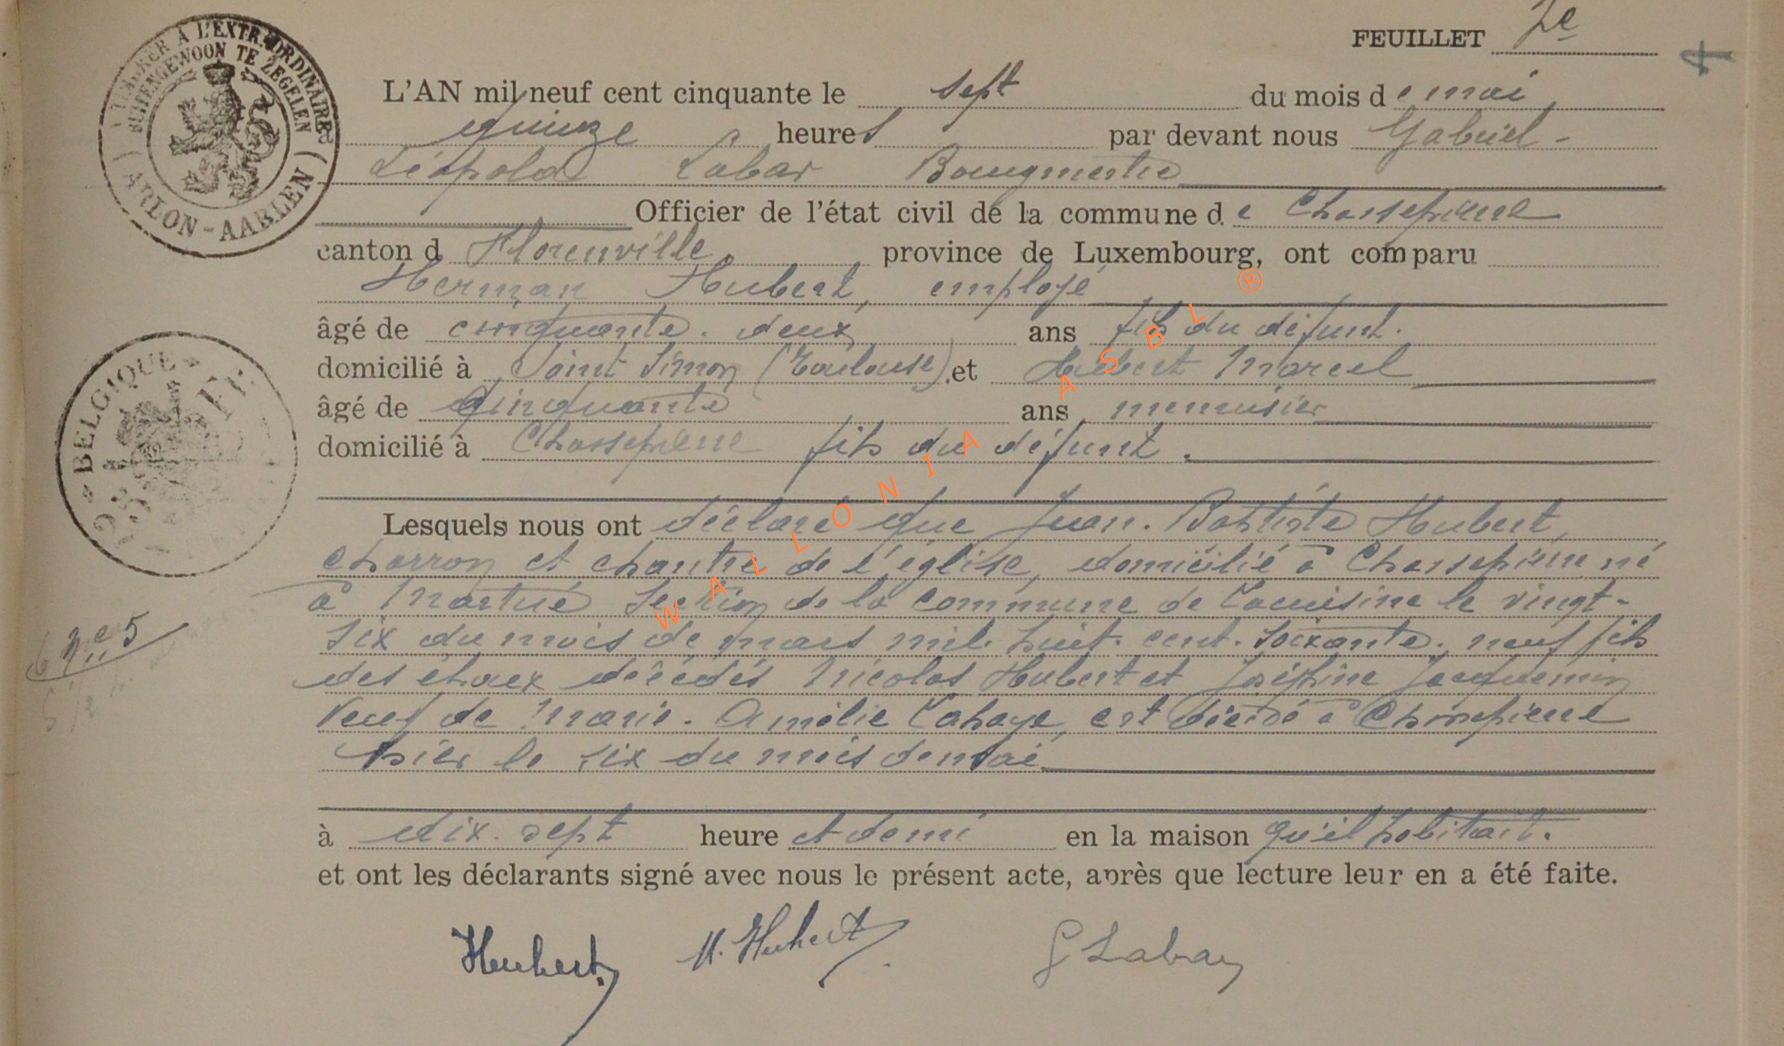 TIMBRER A L'EXTRAORDINAIRE
BUITENGEWOON TE ZEGELEN
ARLON-AARLEN
FEUILLET 2e
L'AN mil neuf cent cinquante le sept du mois de mai,
quinze heures par devant nous Gabriel-
Léopold Labar Bourgmestre
Officier de l'état civil de la commune de Chassepierre
canton d Florenville, province de Luxembourg, ont comparu
Herman Hubert, employé
âgé de cinquante-deux ans fils du défunt.
domicilié à Saint Simon (Toulouse), et Hubert Marcel
âgé de cinquante ans menuisier
domicilié à Chassepierre fils du défunt.
BELGIQUE
Lesquels nous ont déclaré que Jean-Baptiste Hubert,
charron et chantre de l'église, domicilié à Chassepierre né
à Martué Section de la commune de Lacuisine le vingt-
six du mois de mars mil huit-cent-soixante-neuf fils
des époux décédés Nicolas Hubert et Joséphine Jacquemin
Veuf de Marie-Amélie Lahaye, est décédé à Chassepierre
hier le six du mois de mai
à dix-sept heure et demi en la maison qu'il habitait.
et ont les déclarants signé avec nous le présent acte, après que lecture leur en a été faite.
Hubert M. Hubert G Labar
WALLONIA ASBL ®